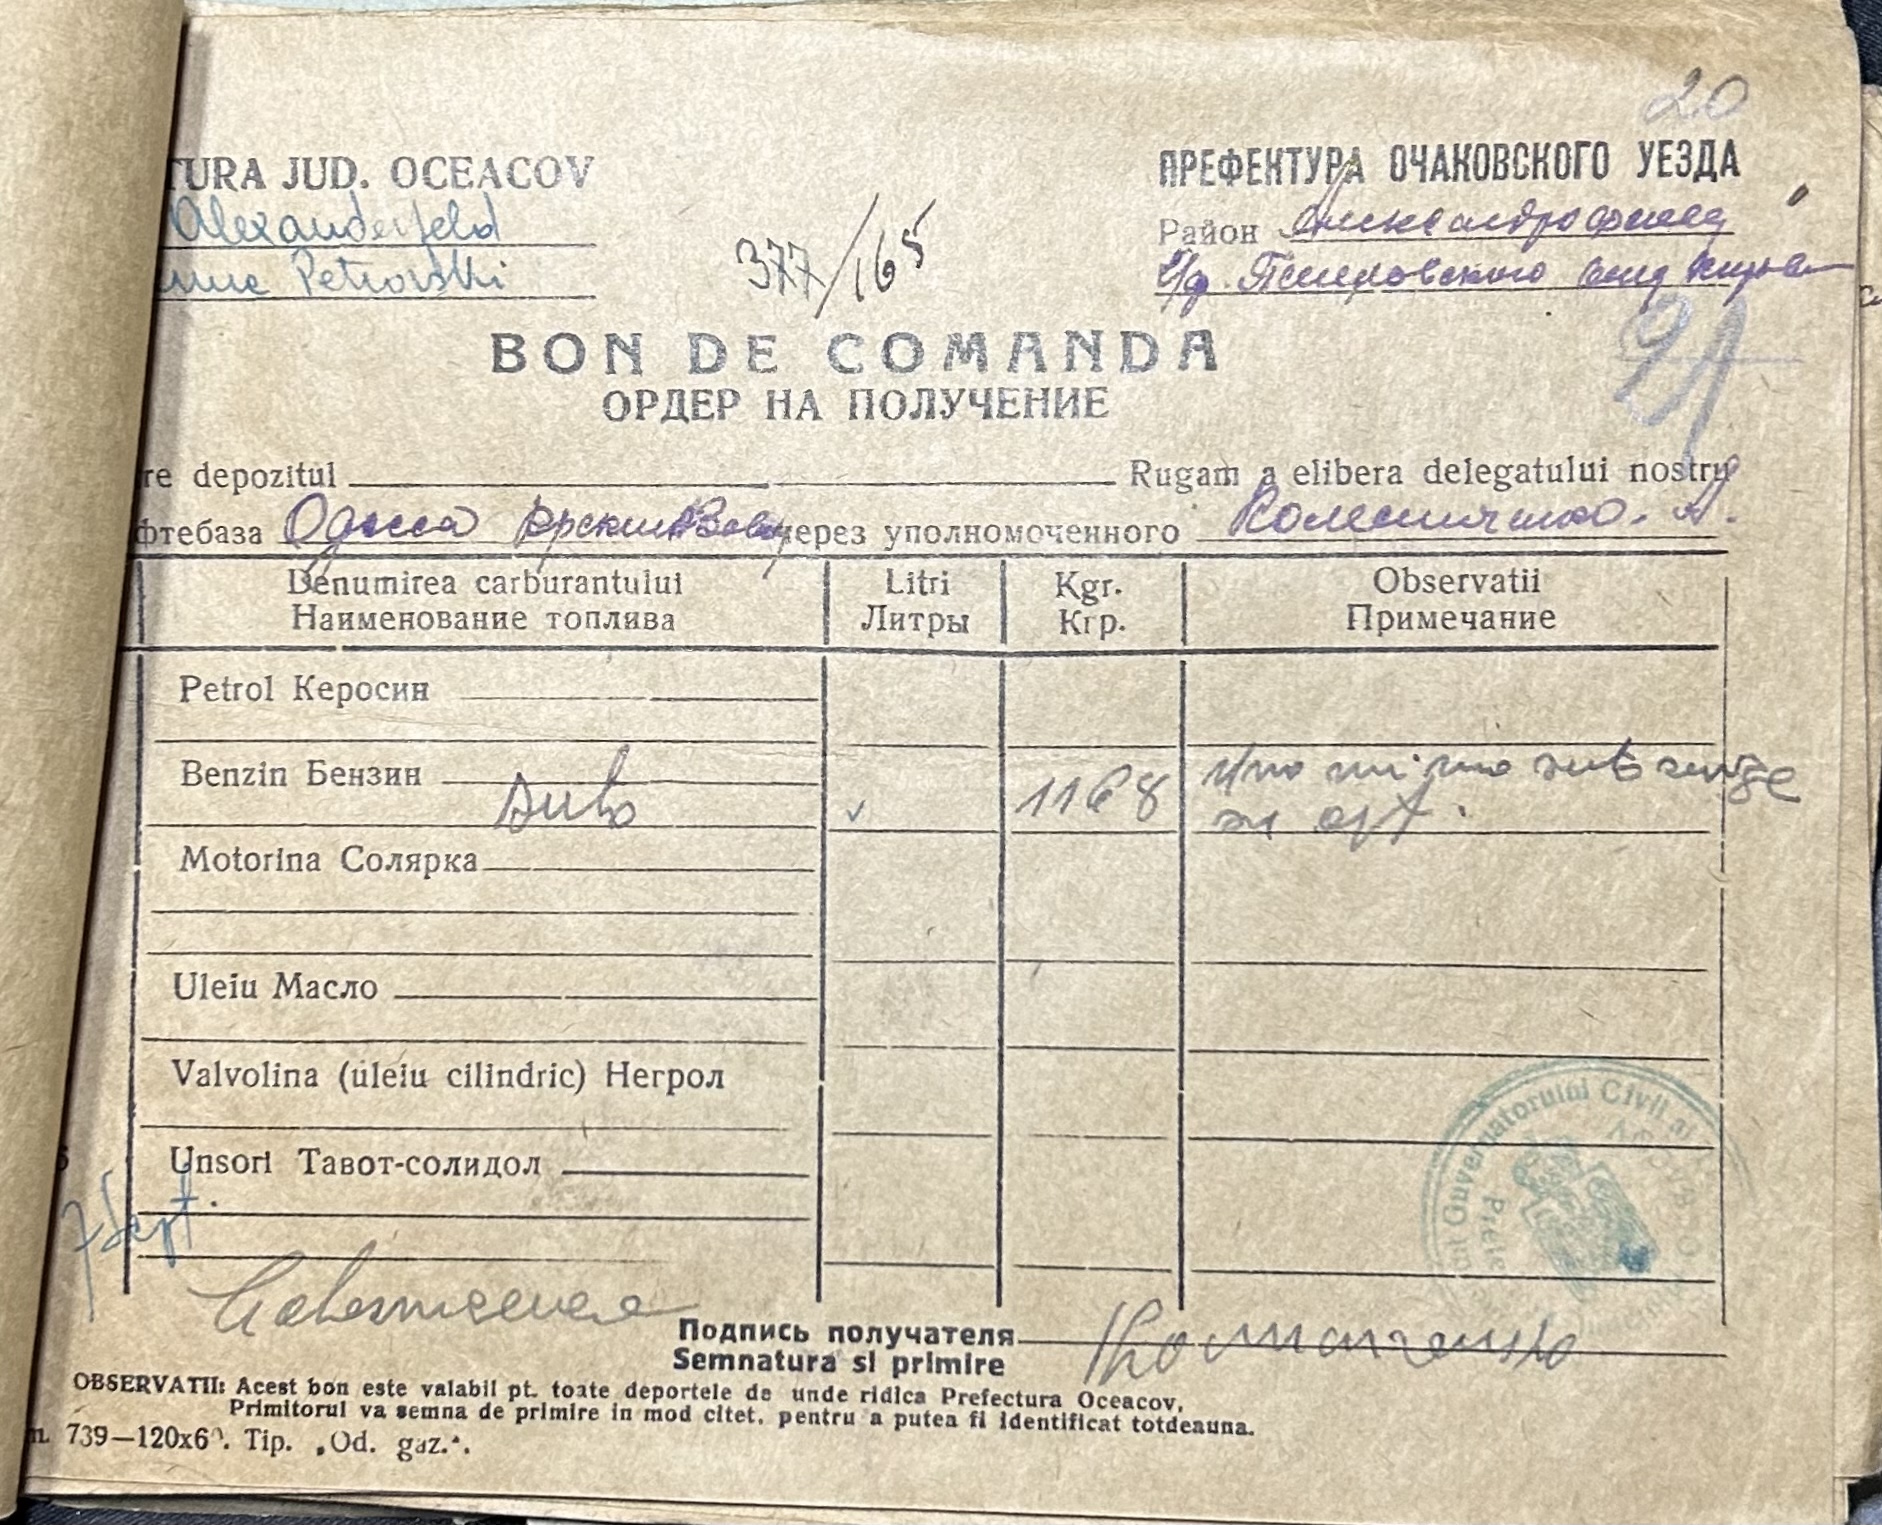 20
TURA JUD. OCEACOV
ПРЕФЕКТУРА ОЧАКОВСКОГО УЕЗДА
Alexanderfeld
Район Александрофельд
Petrovski
377/165
Петровского
BON DE COMANDA
ОРДЕР НА ПОЛУЧЕНИЕ
re depozitul Rugam a elibera delegatului nostru
фтебаза Одесса через уполномоченного Колесниченко. А.
Denumirea carburantului Litri Kgr. Observatii
Наименование топлива Литры Кгр. Примечание
Petrol Керосин
Benzin Бензин
1168
Motorina Солярка
Uleiu Масло
Valvolina (uleiu cilindric) Негрол
Unsori Тавот-солидол
7 Sept.
Guvernatorului Civil al
Подпись получателя
Semnatura si primire
OBSERVATII: Acest bon este valabil pt. toate deportele de unde ridica Prefectura Oceacov.
Primitorul va semna de primire in mod citet, pentru a putea fi identificat totdeauna.
739—120x6. Tip. „Od. gaz.".